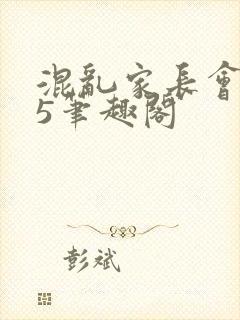 混亂家長會
5筆趣閣
彭斌